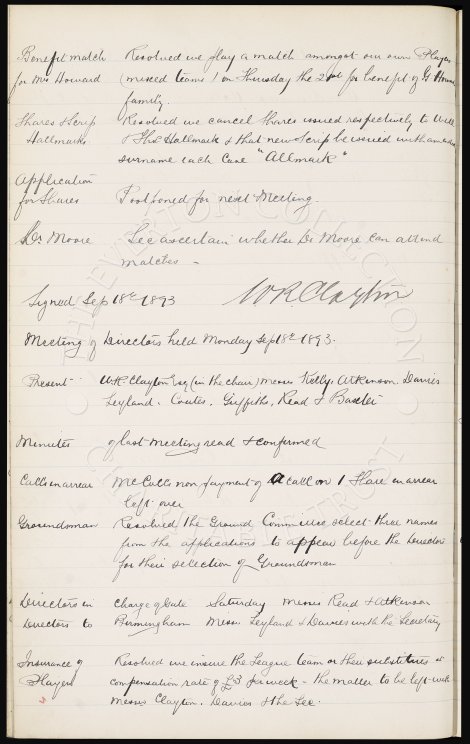 Benefit match Resolved we play a match amongst our own Players
for Mrs Howard (mixed teams) on Thursday the 21st for benefit of G.
family.
Shares & Scrip Resolved we cancel Shares issued respectively to Will
Hallmarks & Thos Hallmark & that new Scrip be issued with
surname each Case "Allmark"
Application
for Shares Postponed for next Meeting.
Dr Moore Sec ascertain whether Dr Moore can attend
matches -
Signed Sep 18th 1893 W R Clayton
Meeting of Directors held Monday Sep 18th 1893.
Present W.R. Clayton Esq (in the chair) Messrs Kelly. Atkinson. Davies
Leyland. Coates. Griffiths, Read & Baxter
Minutes of last Meeting read & confirmed
Calls in arrear McCalls non payment of a call on 1 Share in arrear
left over
Groundsman Resolved the Ground Committee select three names
from the applications to appear before the Directors
for their selection of Groundsman
Directors in charge of Gate Saturday Messrs Read & Atkinson
Directors to Birmingham Messrs Leyland & Davies with the Secretary
Insurance of Resolved we insure the League team or their substitutes at
Players compensation rate of £3 per week - the matter to be left with
Messrs Clayton. Davies & the Sec.
THE EVERTON COLLECTION
CHARITABLE TRUST